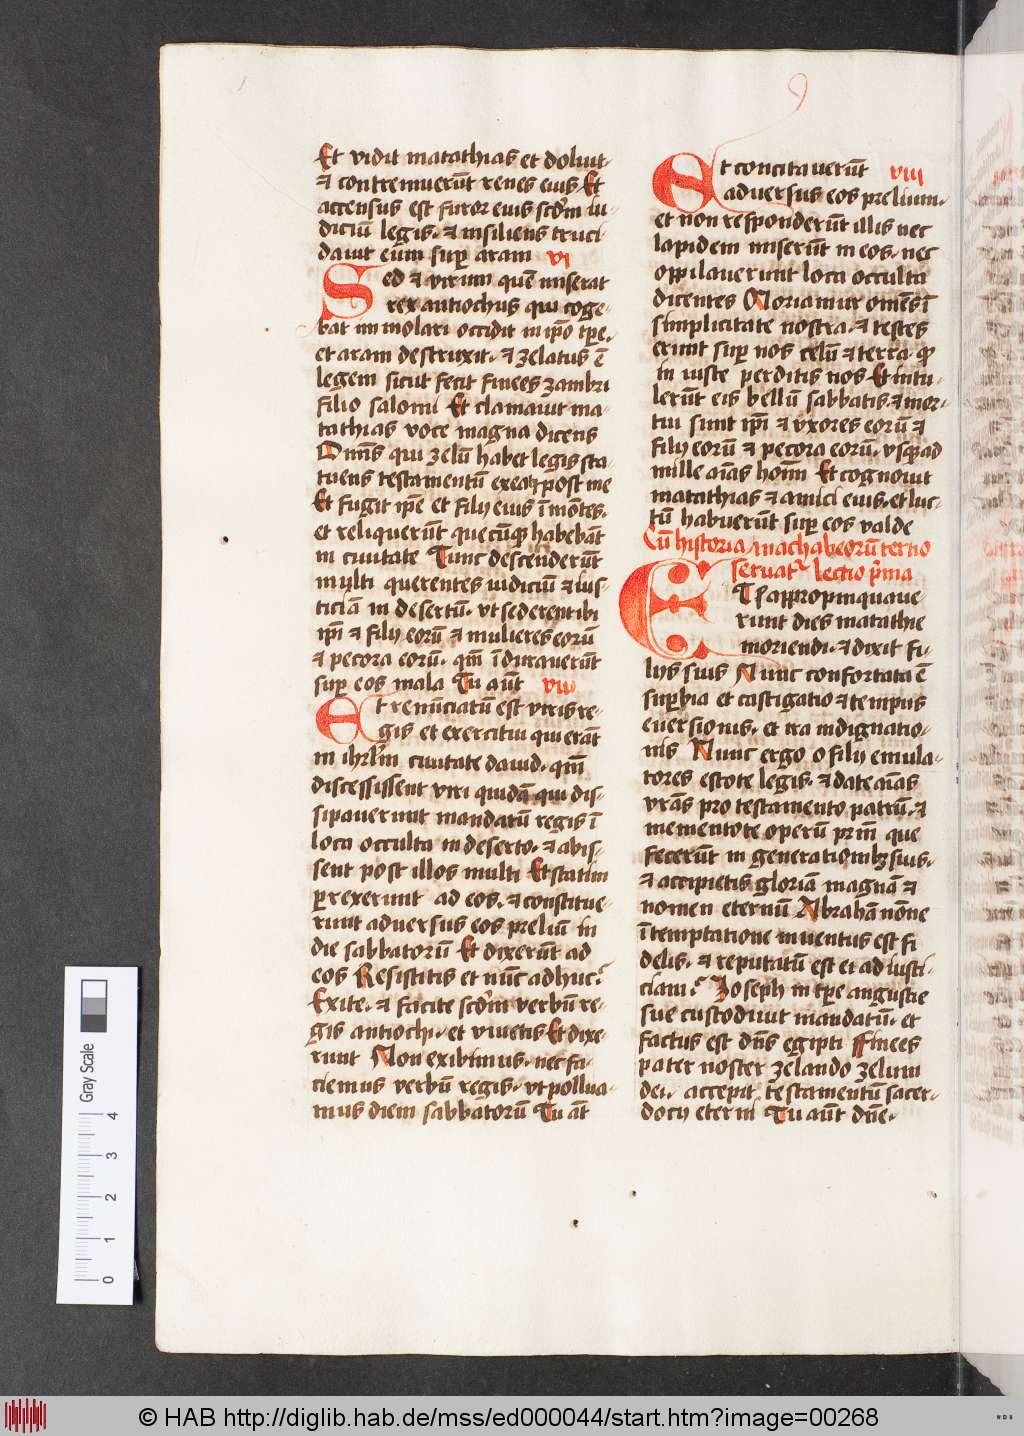 Et vidit matathias et doluit
⁊ contremuerūt renes eius Et
accensus est furor eius scdm̄ iu-
diciū legis. ⁊ insiliens truci
davit eūm sup̱ aram vi
Sed ⁊ virum quē miserat
rex antiochus qui coge-
bat immolari occidit in ip̄o tp̄e.
et aram destruxit. ⁊ zelatus ē
legem sicut fecit finees zambri
filio salomi Et clamavit ma-
tathias voce magna dicens
Omn̄s qui zelū habet legis sta-
tuens testamentū exeat post me
Et fugit ip̄e et filij eius ī mōtes.
et reliquerūt quecūqꝫ habebāt
in civitate Tunc descenderūt
multi querentes iudiciū ⁊ ius-
ticiā in desertū. vt sederent ibi
ip̄i ⁊ filij eorū ⁊ mulieres eorū
⁊ pecora eorū. qm̄ īduraverūt
sup̱ eos mala Tu aūt vii
Et renūciatū est viris re-
gis et exercitui qui erāt
in ihrl̄m civitate david. qm̄
discessissent viri quidā qui dis-
sipaverunt mandatū regis ī
loca occulta in deserto. ⁊ abis-
sent post illos multi Et statim
p̱rexerunt ad eos. ⁊ constitue-
runt adversus eos preliū in
die sabbatorū Et dixerūt ad
eos Resistitis et nūc adhuc?
Exite. ⁊ facite scdm̄ verbū re-
gis antiochi. et vivetis Et dixe-
runt Non exibimus. nec fa-
ciemus verbū regis. vt pollua-
mus diem sabbatorū Tu aūt
Et concitaverūt viii
adversus eos prelium.
et non responderūt illis nec
lapidem miserūt in eos. nec
oppilaverunt loca occulta
dicentes Moriamur omēs ī
simplicitate nostra. ⁊ testes
erunt sup̱ nos celū ⁊ terra. qꝫ
in iuste perditis nos Et intu-
lerūt eis bellū sabbatis. ⁊ mor-
tui sunt ip̄i ⁊ vxores eorū ⁊
filij eorū ⁊ pecora eorū. vsqꝫ ad
mille aīas hom̄ Et cognovit
matathias ⁊ amici eius. et luc-
tū habuerūt sup̱ eos valde
Cū historia machabeorū tertio
servatr̄ lectio p̄ma
ET appropinquave-
runt dies matathie
moriendi. ⁊ dixit fi-
lijs suis Nunc confortata ē
sup̱bia et castigatio ⁊ tempus
eversionis. et ira indignatio-
nis Nunc ergo o filij emula-
tores estote legis. ⁊ date aīas
vrās pro testamento patrū. ⁊
mementote operū prm̄ que
fecerūt in generationibꝫ suis.
⁊ accipietis gloriā magnā ⁊
nomen eternū Abrahā nōne
ī temptatione inventus est fi
delis. ⁊ reputatū est ei ad iusti-
ciam? Joseph in tp̄e angustie
sue custodivit mandatū. et
factus est dn̄s egipti ffinees
pater noster zelando zelum
dei. accepit testamentū sacer-
docij eterni Tu aūt dn̄e.
Gray Scale
0 1 2 3 4
© HAB http://diglib.hab.de/mss/ed000044/start.htm?image=00268